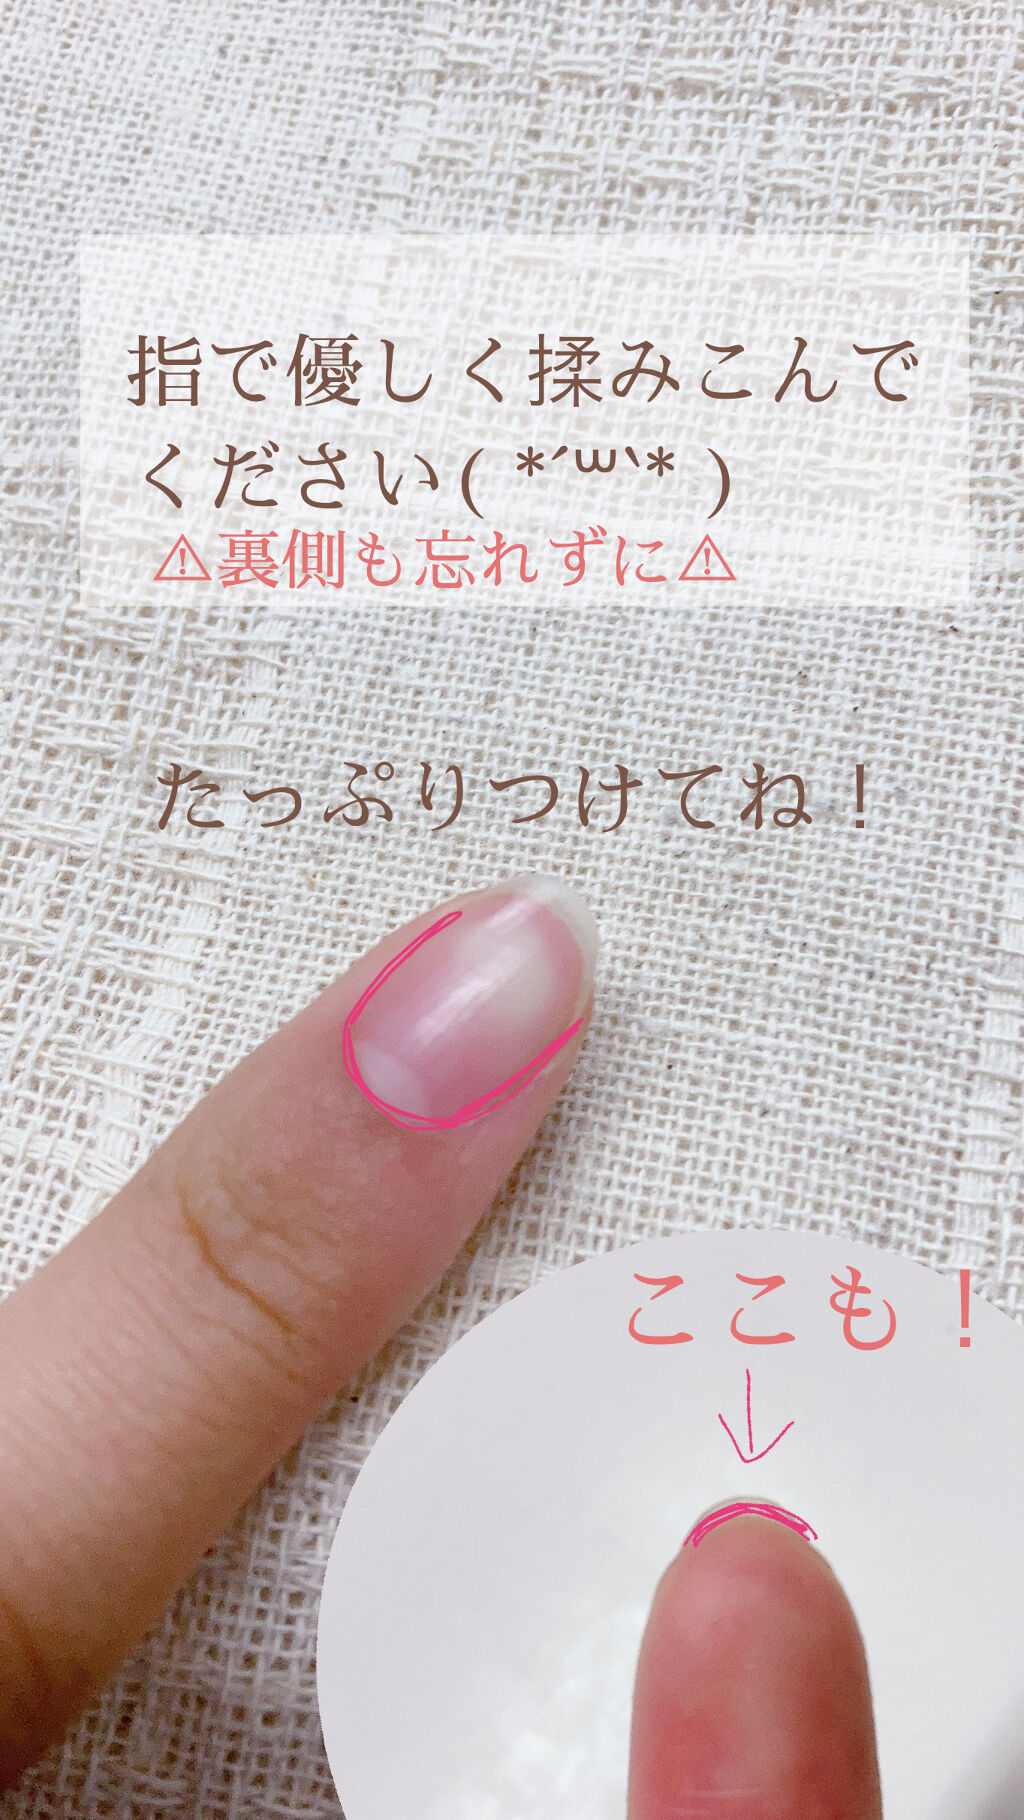 指で優しく揉みこんで
ください( *´꒳`* )
⚠裏側も忘れずに⚠
たっぷりつけてね！
ここも！